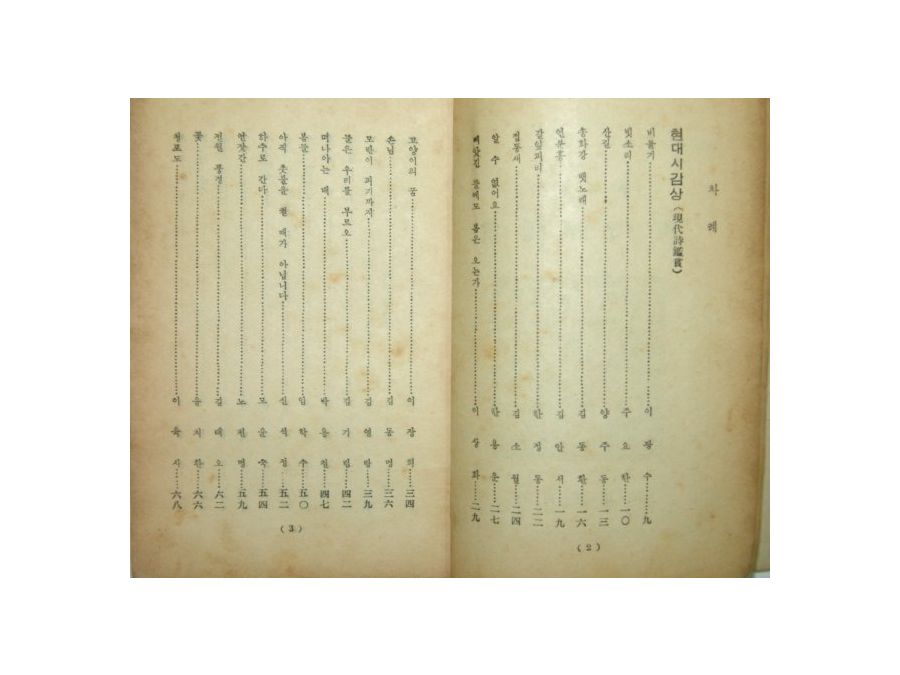 차례
현대시감상 (現代詩鑑賞)
비둘기……이광수……九
빗소리……주요한……一〇
산길……양주동……一三
송화강 뱃노래……김동환……一六
연분홍……김안서……一九
갈잎피리……한정동……二二
접동새……김소월……二四
알 수 없어요……한용운……二七
빼앗긴 들에도 봄은 오는가……이상화……二九
(2)
고양이의 꿈……이장희……三四
손님……김동명……三六
모란이 피기까지……김영랑……三九
물은 우리를 부르오……김기림……四二
떠나가는 배……박용철……四七
봄뜰……임학수……五〇
아직 촛불을 켤 때가 아닙니다……신석정……五二
하수로 간다……모윤숙……五四
언장간……노천명……五九
전원 풍경……김태오……六二
꽃……윤치환……六六
청포도……이육사……六八
(3)